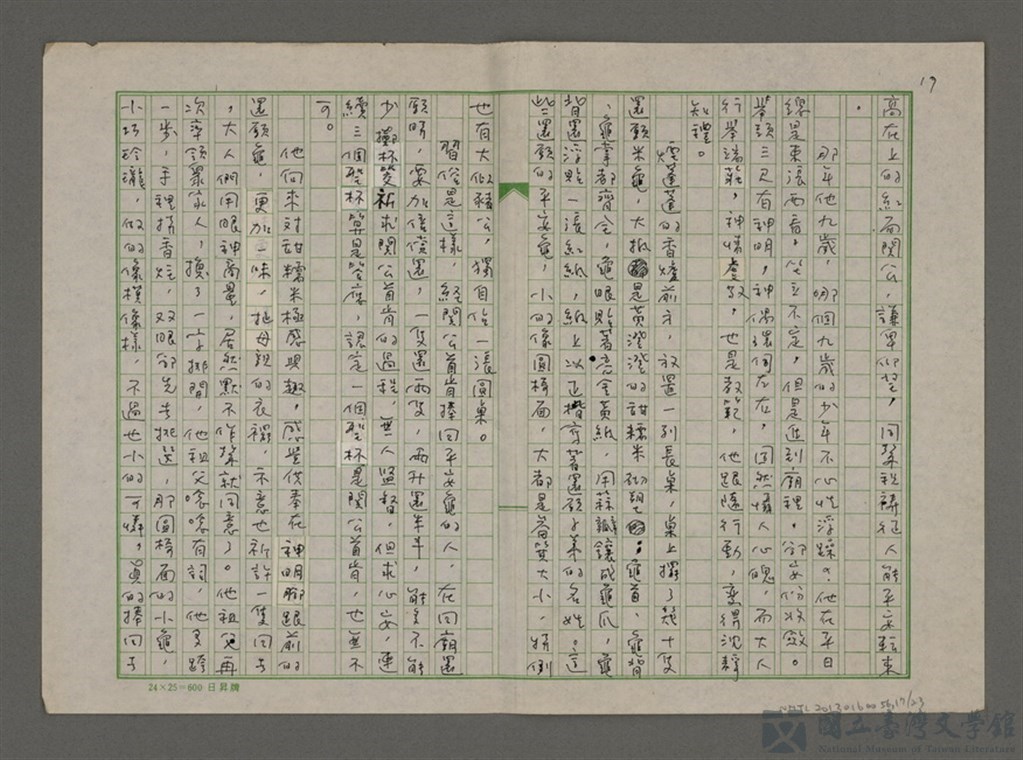 17
高在上的紅面關公,謙卑仰望,同
人能平安転來
。
那年他九歲,哪個九歲的少年不心性浮躁?他在平日
總是東滾西竄,坐立不定,但是進到廟裡,卻安份收斂。
舉頭三尺有神明,神偶環伺左右,固然懾人心魄,而大人
行舉端莊,神情虔敬,也是教範,他跟隨行動,變得沈靜
知禮。
煙蓬蓬的香爐前方,放置一列長桌,桌上擺了幾十隻
還願米龜,大抵是黃澄澄的甜糯米砌塑;龜首、龜背
、龜掌都齊全,龜眼貼著亮金黃紙,用蒜瓣鑲成龜爪,龜
背還浮貼一張紅紙,紙上以正楷寫著還願子弟的名姓。這
些還願的平安龜,小的像圓椅面,大都是畚箕大小,特例
也有大似豬公,獨自佔一張圓桌。
習俗是這樣,經關公首肯捧回平安龜的人,在回廟還
願時,要加倍償還,一隻還兩隻,兩斤還半半,能多不能
少,擲杯筊祈求關公首肯的過程,無人監督,但求心安,連
續三個聖杯算是答應,認定一個聖杯是關公首肯,也無不
可。
他回來對甜糯米極感興趣,感覺供奉在神明腳跟前的
還願龜,更加一味,拖母親的衣襬,示意也祈許一隻回去
,大人們用眼神商量,居然默不作聲就同意了。他祖父再
次率領眾家人,換了一字排開,他祖父唸唸有詞,他多跨
一步,手裡持香炷,双眼卻先去挑選,那圓椅面的小龜,
小巧玲瓏,做的像模像樣,不過也小的可憐,真的捧回去
24×25=600 日昇牌
NMTL 20130160056 17/23
國立臺灣文學館
National Museum of Taiwan Literature